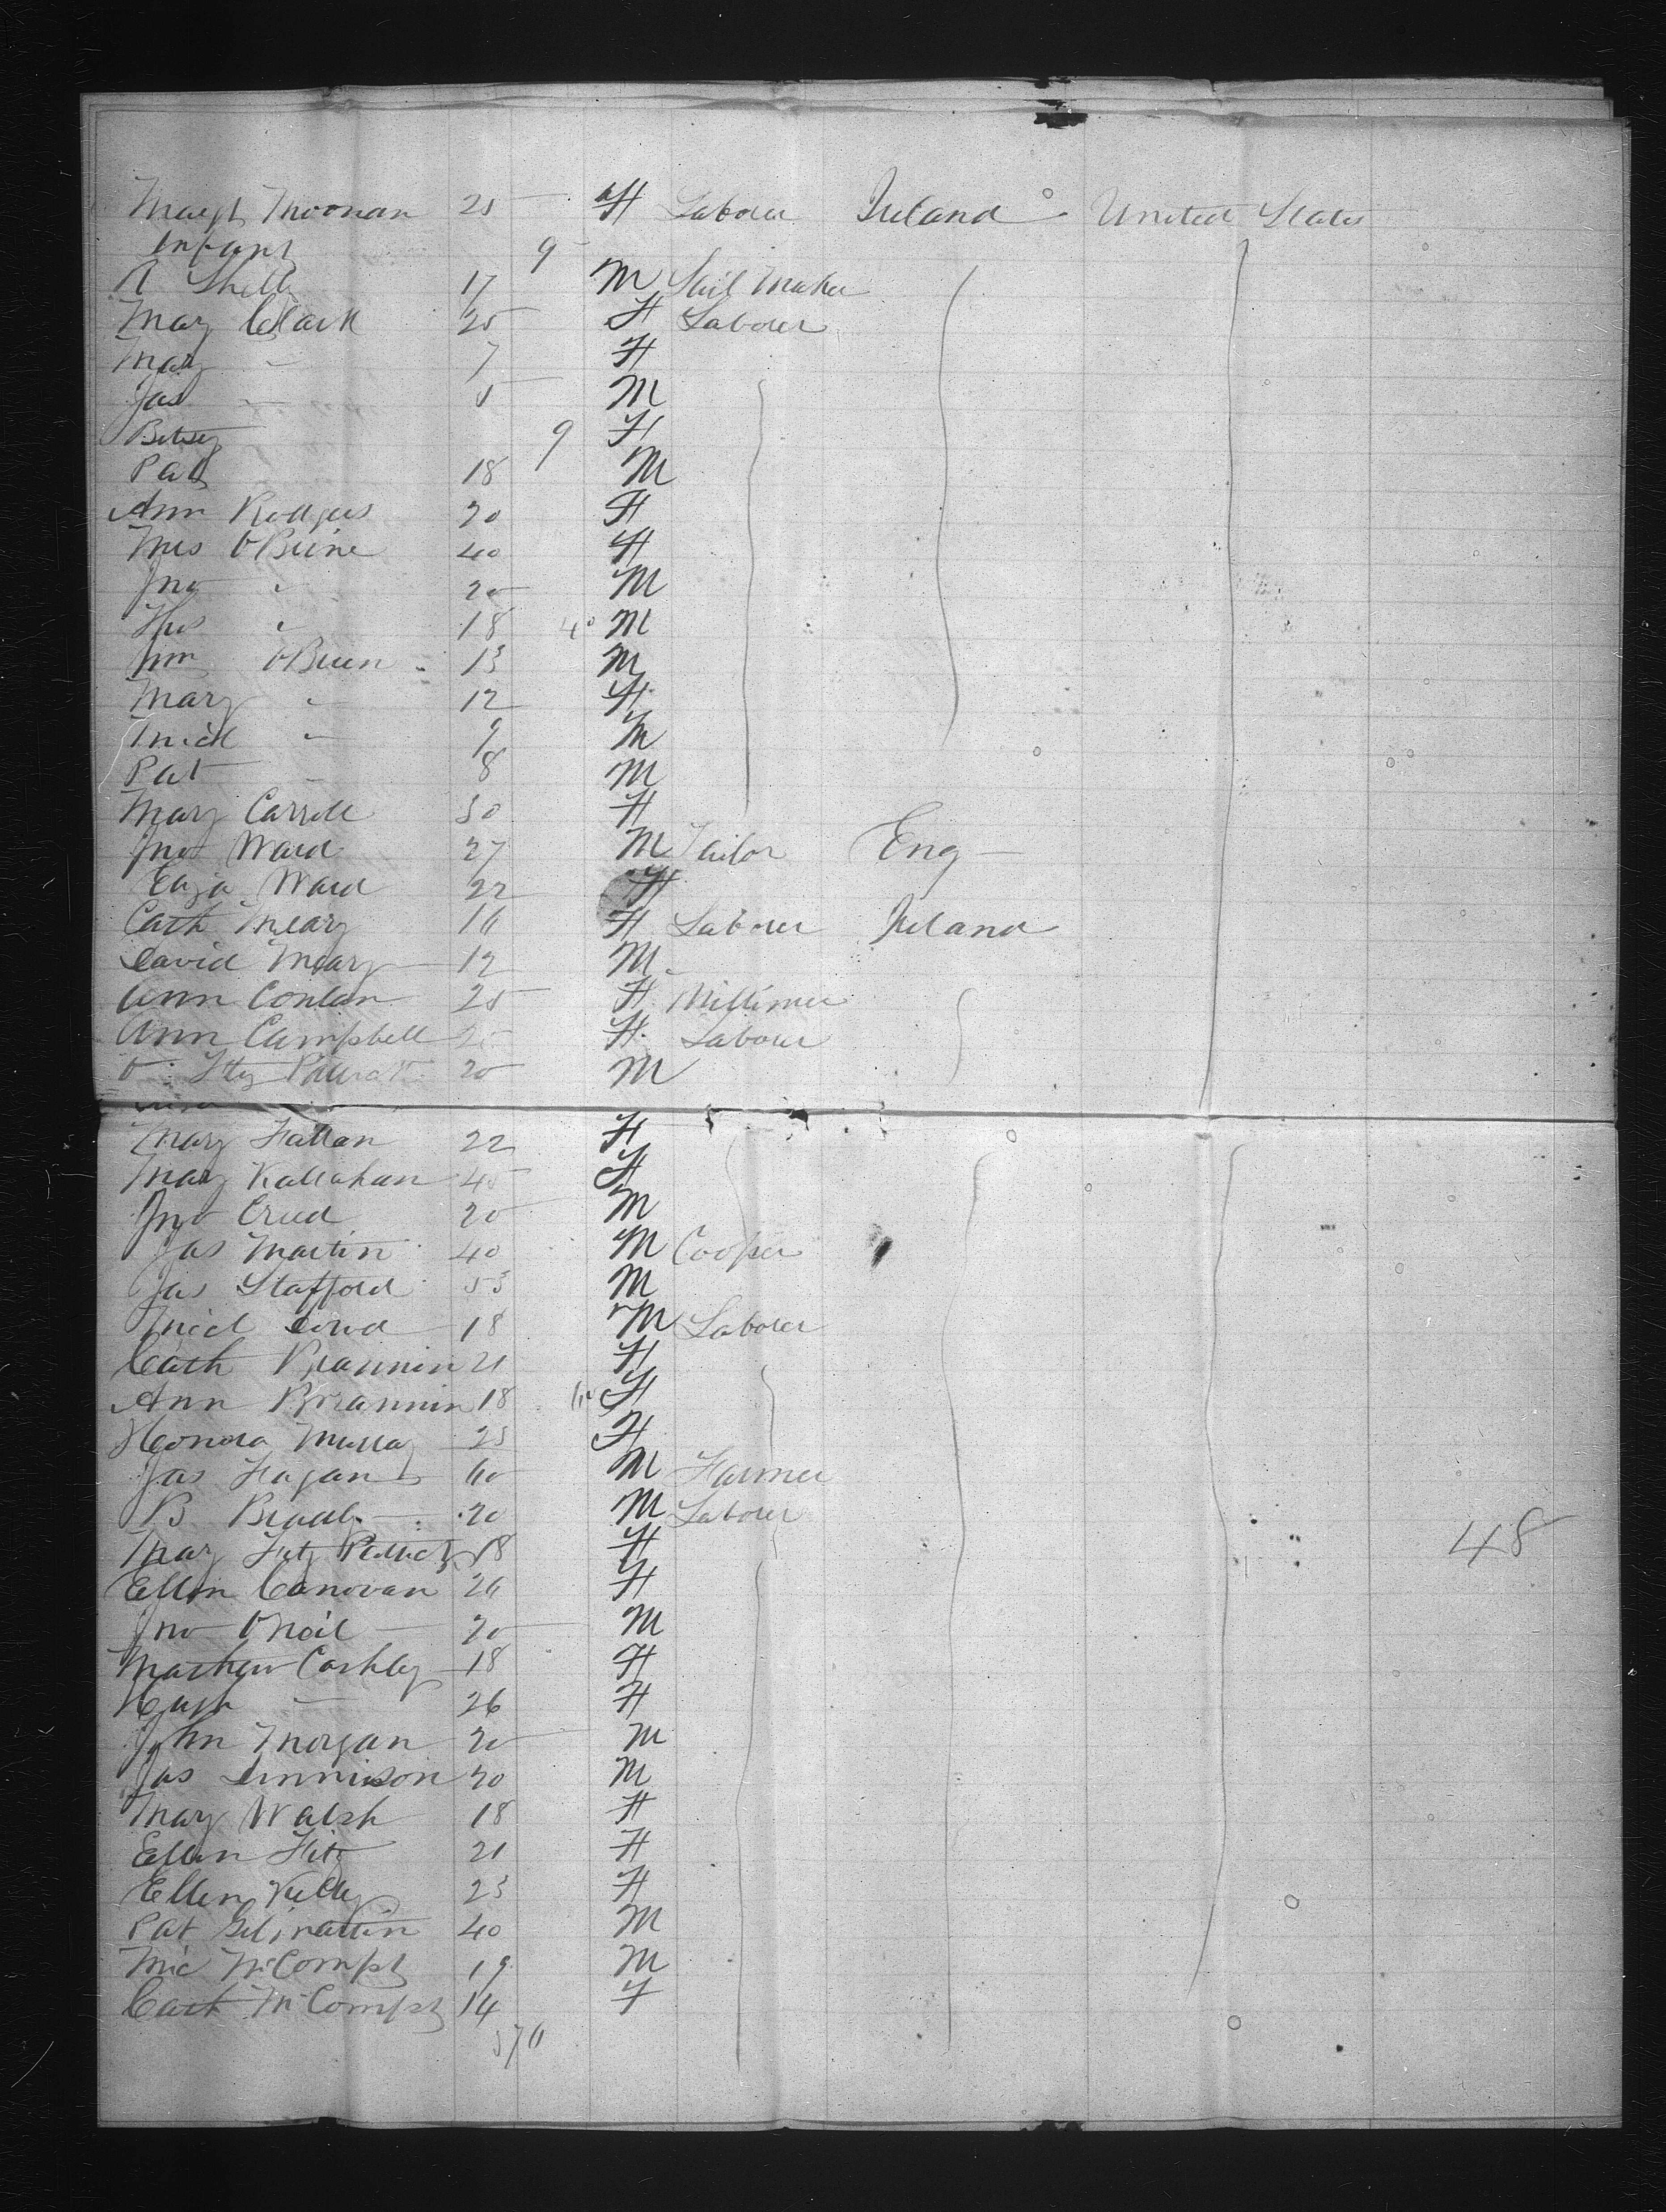 Margt Moonan 25 F Laborer Ireland United States
Infant 9
A Shelly 17 M Sail Maker
Mary Clark 25 F Laborer
Mary " 7 F
Jas " 5 M
Betsey 9 F
Pat 18 M
Ann Rodgers 20 F
Mrs OBrine 40 F
Jno " 20 M
Thos " 18 40 M
Wm OBrien 13 M
Mary " 12 F
Mich " 9 M
Pat " 8 M
Mary Carroll 30 F
Jno Ward 27 M Tailor Eng
Eliza Ward 22 F
Cath Meary 16 F Laborer Ireland
David Meary 12 M
Ann Conlan 25 F Milliner
Ann Campbell 25 F Laborer
O Fitz Patrick 20 M
Mary Fallan 22 F
Mary Kallahan 45 F
Jno Creed 20 M
Jas Martin 40 M Cooper
Jas Stafford 53 M
Mich Dowd 18 M Laborer
Cath Brannin 21 F
Ann Brannin 18 60 F
Honora Murray 23 F
Jas Fagan 60 M Farmer
B Bradly 20 M Laborer
Mary Fitz Patrick 18 F
48
Ellen Canovan 26 F
Jno ONeil 20 M
Mathew Cashley 18 F
Hugh " 26 F
John Morgan 20 M
Jas Dinnison 20 M
Mary Walsh 18 F
Ellen Fitz 21 F
Ellen Kelly 23 F
Pat Gilmartin 40 M
Mic McCompt 19 M
Cath McCompt 14 F
570